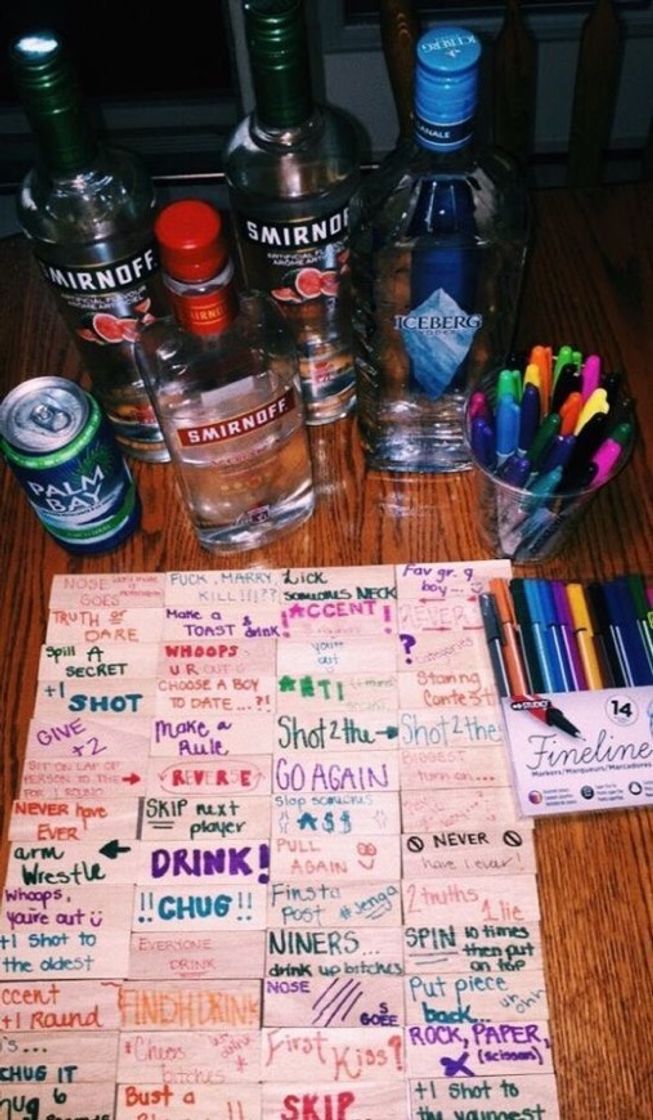 ICEBERG
SMIRNOFF
ARTIFICIAL FLAVOUR
SMIRNOFF
ARTIFICIAL
ICEBERG
VODKA
SMIRNOFF
PALM
BAY
14
Fineline
Markers/Marqueurs/Marcadores
NOSE
GOES
FUCK, MARRY,
KILL!!!??
Lick
someones NECK
Fav gr. 9
boy...
TRUTH OR
DARE
Make a
TOAST & drink
!ACCENT!
REVERSE
Spill A
SECRET
WHOOPS
U R OUT
your
out
?
categories
+1 SHOT
CHOOSE A BOY
TO DATE...?!
Staring
Contest
GIVE
+2
Make a
Rule
Shot 2 the →
Shot 2 the
SIT ON LAP OF
PERSON TO THE →
FOR 1 ROUND
REVERSE
GO AGAIN
BIGGEST
turn on...
NEVER have
EVER
SKIP next
player
Slap someones
A$$
arm
Wrestle
DRINK!
PULL
AGAIN
NEVER
have I ever!
Whoops,
you're out
!!CHUG!!
Finsta
Post #jenga
2 truths
1 lie
+1 Shot to
the oldest
EVERYONE
DRINK
NINERS...
drink up bitches
SPIN 10 times
then put
on top
ccent
+1 Round
FINISH DRINK
NOSE
GOES
Put piece
back... uh ohh
's...
CHUG IT
Cheers
bitches
First Kiss?
ROCK, PAPER,
(scissors)
hug 6
Bust a
SKIP
+1 Shot to
the youngest